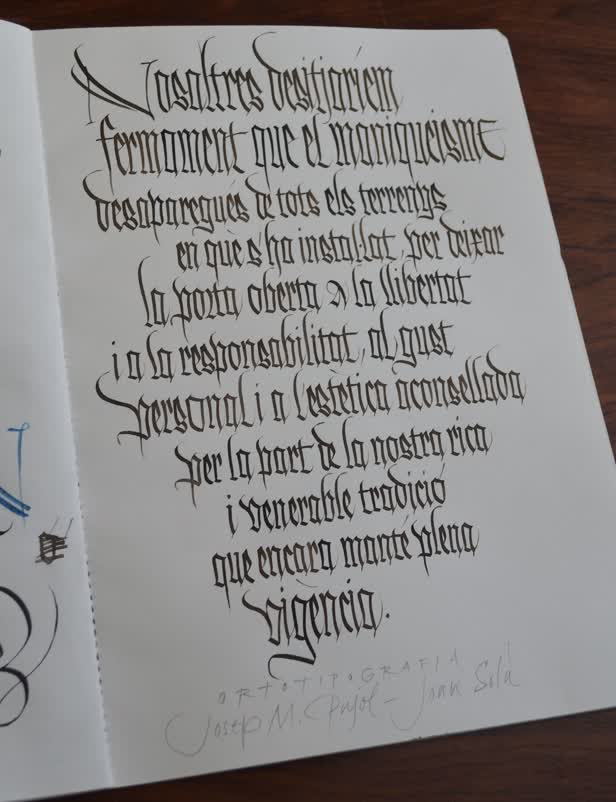 Nosaltres desitjaríem
fermament que el maniqueisme
desaparegués de tots els terrenys
en què s'ha instal·lat, per deixar
la porta oberta a la llibertat
i a la responsabilitat, al gust
personal i a l'estètica aconsellada
per la part de la nostra rica
i venerable tradició
que encara manté plena
vigència.
ORTOTIPOGRAFIA
Josep M. Pujol - Joan Solà